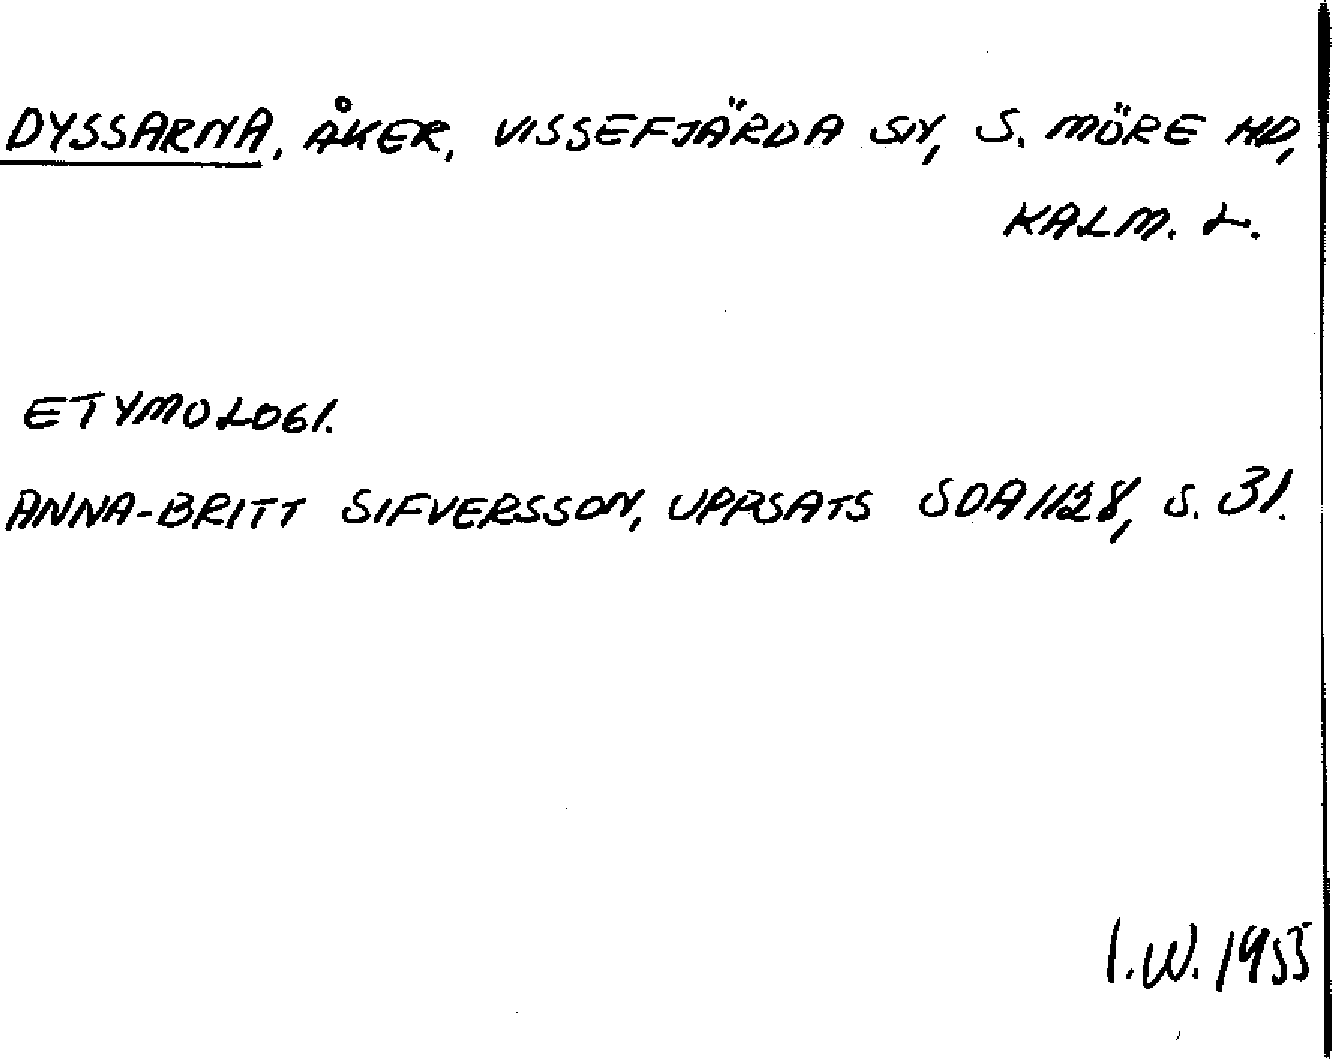 DYSSARNA, ÅKER, VISSEFJÄRDA SN, S. MÖRE HD,
KALM. L.
ETYMOLOGI.
ANNA-BRITT SIFVERSSON, UPPSATS SOA1128, S. 31.
I.W. 1955